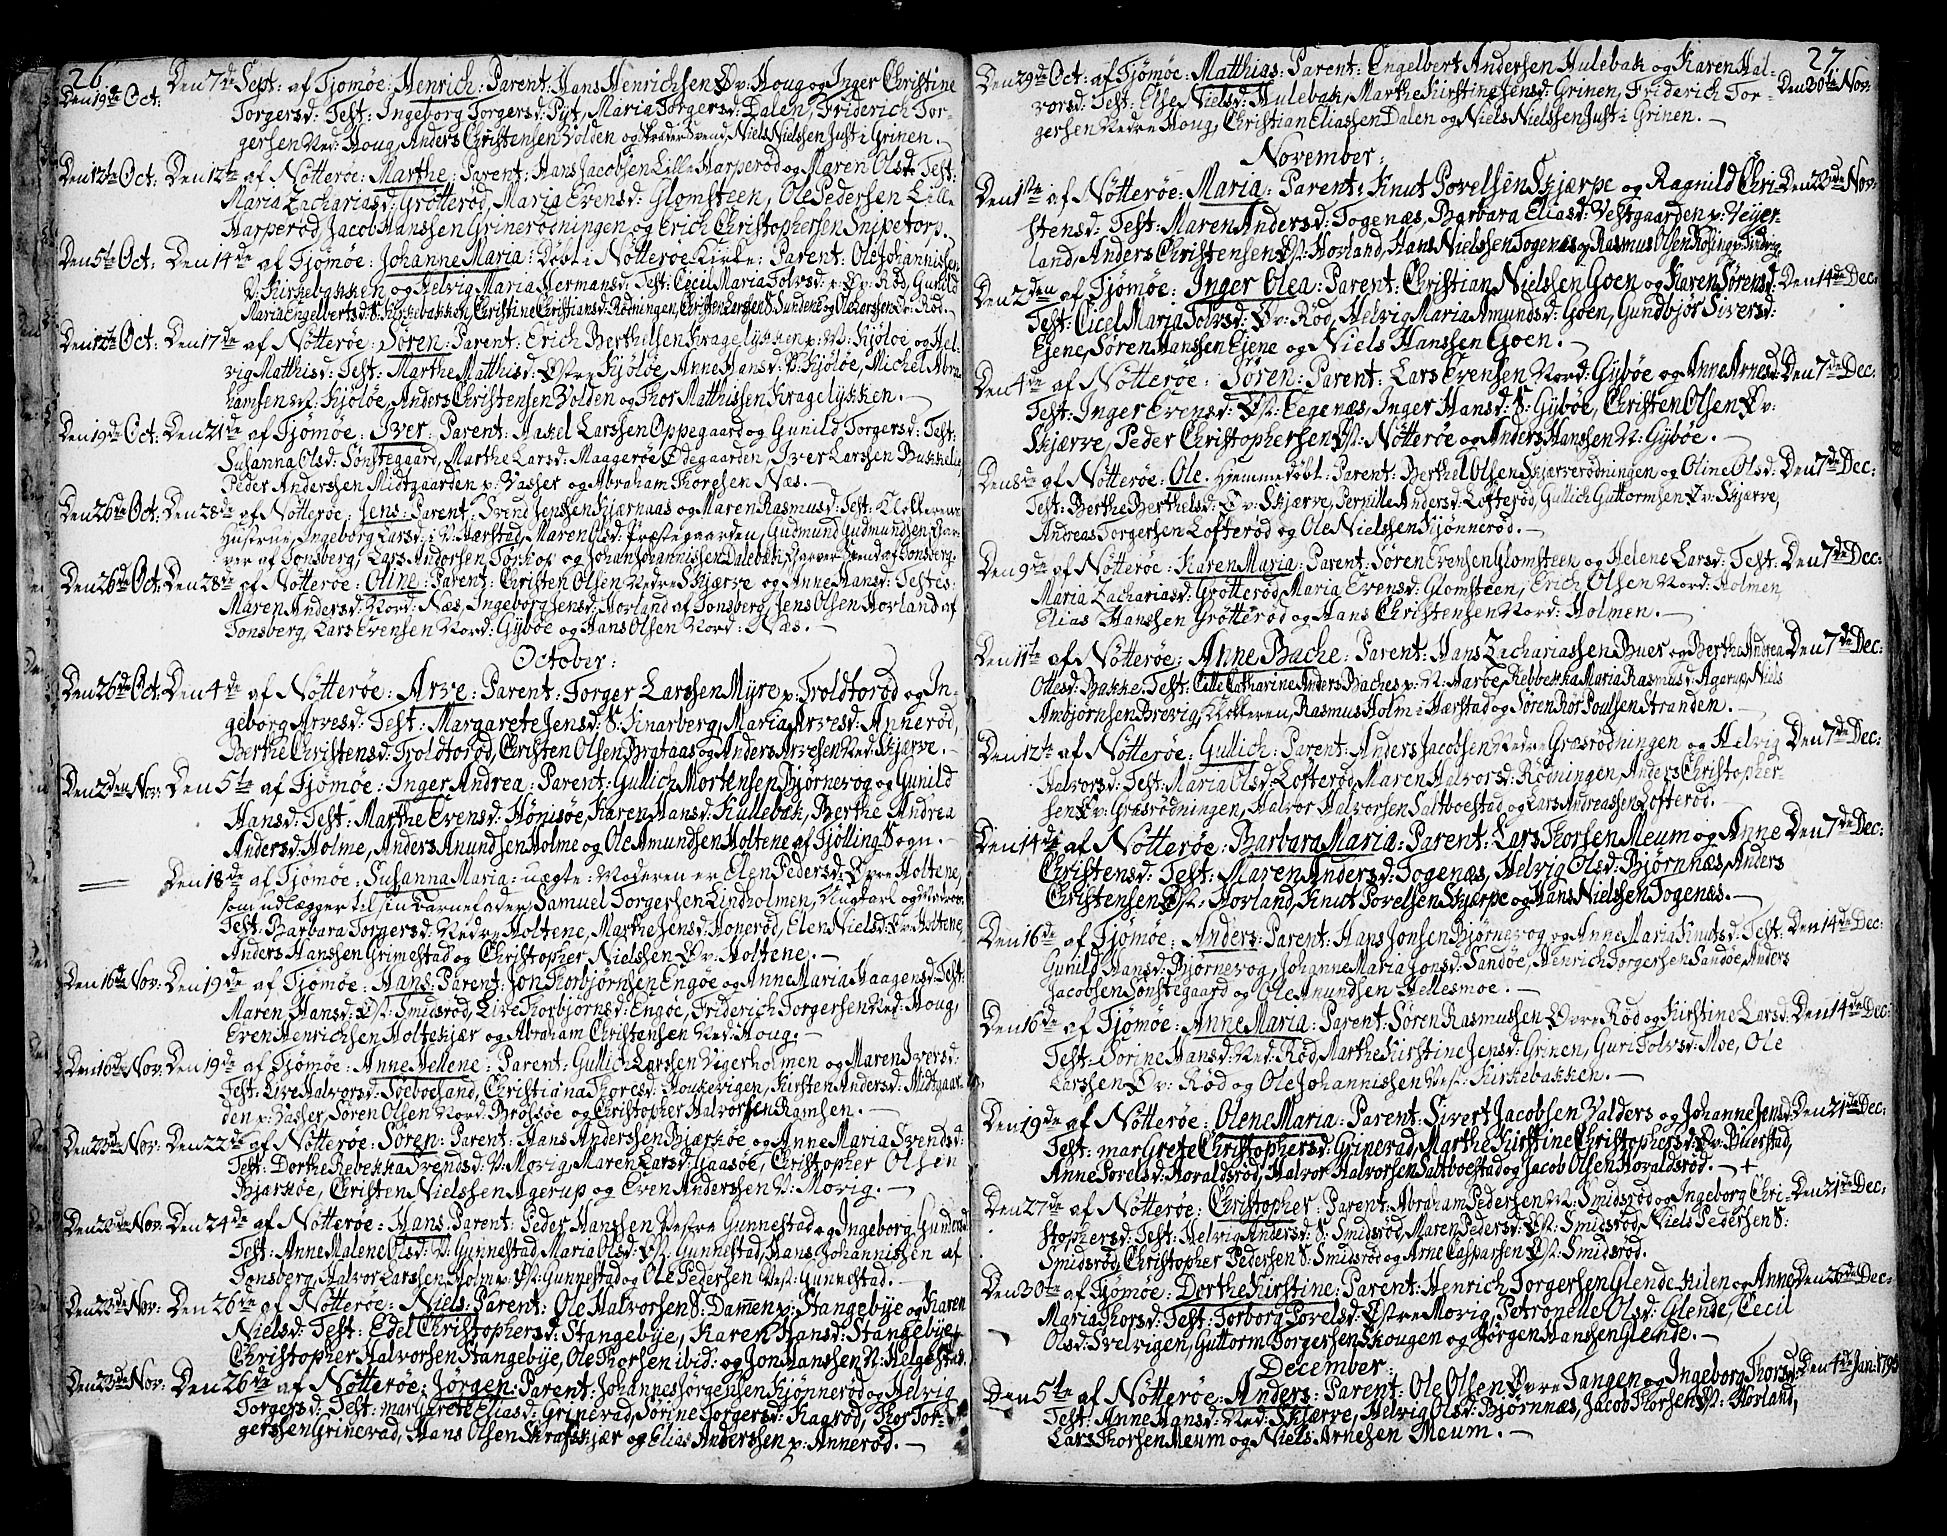 26
Den 7de Sept. af Tjømøe: Henrich: Parent: Hans Henrichsen Øv: Houg og Inger Christine
Den 19de Oct:
Torgersd: Test: Ingeborg Torgersd: Pyt, Maria Torgersd: Dalen, Friderich Tor-
gersen Ned: Houg, Anders Christensen Volden og Skræder Svend Niels Nielssen Just i Grinen.
Den 12te Oct: Den 12te af Nøtterøe: Marthe: Parent: Hans Jacobsen Lille Harperød og Maren Olsd: Test:
Maria Zachariasd: Grøtterød, Maria Evensd: Glomsteen, Ole Pedersen Lille
Harperød, Jacob Hanssen Grinerødningen og Erich Christophersen Snipetorp.
Den 5te Oct: Den 14de af Tjømøe: Johanne Maria: Døbt i Nøtterøe Kirke: Parent: Ole Johannissen
V: Kirkebakken og Helvig Maria Hermansd: Test: Cecil Maria Tolvsd: Øv: Rød, Gunild
Maria Engelbertsd: S: Kirkebakken, Christine Christiansd: Rødningen, Christen Larssen S: Sundene og Ole Larssen Øv: Rød.
Den 12te Oct: Den 17de af Nøtterøe: Søren: Parent: Erich Berthelsen Kragelykken p: V: Kjøløe og Hel-
vig Matthisd: Test: Marthe Matthisd: Østre Kjøløe, Anne Hansd: V: Kjøløe, Michel Abra-
hamsen V: Kjøløe, Anders Christensen Volden og Thor Matthissen Kragelykken.
Den 19de Oct: Den 21de af Tjømøe: Iver: Parent: Aaxel Larssen Oppegaard og Gunild Torgersd: Test:
Susanna Olsd: Sønstegaard, Marthe Larsd: Maagerøe Ødegaarden, Iver Larssen Bukkelie
Peder Anderssen Midtgaarden p: Vasser og Abraham Thoresen Næs.
Den 26de Oct: Den 28de af Nøtterøe: Jens: Parent: Svend Jenssen Kjærnaas og Maren Rasmusd: Test: Klokkerens
Hustrue, Ingeborg Larsd: i V: Hærstad, Maren Olsd: Præstegaarden, Gudmund Gudmundsen Gar-
ver af Tonsberg, Lars Andersen Torkop og Johan Johannissen Dalebak, Garver Svend af Tonsberg.
Den 26de Oct: Den 28de af Nøtterøe: Oline: Parent: Christen Olsen Nedre Skjærve og Anne Hansd: Testis:
Maren Andersd: Nord: Næs, Ingeborg Jensd: Horland af Tonsberg, Jens Olsen Horland af
Tonsberg, Lars Evensen Nord: Gybøe og Hans Olsen Nord: Næs.
October:
Den 26de Oct: Den 4de af Nøtterøe: Arve: Parent: Torger Larssen Myre p: Troldtorød og In-
geborg Arvesd: Test: Margarete Jensd: S: Sinarberg, Maria Arvesd: Annerød,
Berthe Christensd: Troldtorød, Christen Olsen Brataas og Anders Arvesen Ned: Skjærve.
Den 2den Nov: Den 5te af Tjømøe: Inger Andrea: Parent: Gullich Mortensen Bjørnevog og Gunild
Hansd: Test: Marthe Evensd: Hønisøe, Karen Hansd: Kullebak, Berthe Andrea
Andersd: Holme, Anders Anundsen Holme og Ole Amundsen Holtene af Tjølling Sogn.
Den 18de af Tjømøe: Susanna Maria: uægte: Moderen er Elen Pedersd: Øvre Holtene,
som udlægger til sin Barnefader, Samuel Torgersen Lindholmen, Ungkarl og Matros.
Test: Barbara Torgersd: Nedre Holtene, Marthe Jensd: Honerød, Elen Nielsd: Øv: Holtene,
Anders Hanssen Grimestad og Christopher Nielssen Øv: Holtene.
Den 16de Nov: Den 19de af Tjømøe: Hans: Parent: Jon Thorbjørnsen Engøe og Anne Maria Haagensd: Test:
Maren Hansd: Øst: Smidsrød, Live Thorbjørnsd: Engøe, Friderich Torgersen Ned: Houg,
Even Henrichsen Holtekjær og Abraham Christensen Ned: Houg.
Den 16de Nov: Den 19de af Tjømøe: Anne Hellene: Parent: Gullich Larssen Vegerholmen og Maren Iversd:
Test: Live Halvorsd: Soeboeland, Christiana Thoresd: Haukevigen, Kirsten Andersd: Midtgaar-
den p: Vasser, Søren Olsen Nord: Brøtsøe og Christopher Halvorsen Ramsen.
Den 23de Nov: Den 22de af Nøtterøe: Søren: Parent: Hans Anderssen Bjærkøe og Anne Maria Svendsd:
Test: Dorthe Rebekka Svendsd: V: Movig, Maren Larsd: Gaasøe, Christopher Olsen
Bjærkøe, Christen Nielssen Agerup og Even Anderssen V: Movig.
Den 20de Nov: Den 24de af Nøtterøe: Hans: Parent: Peder Hanssen Vestre Gunnestad og Ingeborg Gundersd:
Test: Anne Malene Olsd: V: Gunnestad, Maria Olsd: Øst: Gunnestad, Hans Johannissen af
Tonsberg, Halvor Larssen Holm p: Øst: Gunnestad og Ole Pedersen Vest: Gunnestad.
Den 23de Nov: Den 26de af Nøtterøe: Niels: Parent: Ole Halvorsen S: Dammen p: Stangebye og Karen
Nielsd: Test: Edel Christophersd: Stangebye, Karen Hansd: Stangebye,
Christopher Halvorsen Stangebye, Ole Thorsen ibid: og Jon Hanssen N: Helgestad.
Den 23de Nov: Den 26de af Nøtterøe: Jørgen: Parent: Johannes Jørgensen Kjønnerød og Helvig
Torgersd: Test: Margarete Eliasd: Grinerad, Sørine Torgersd: Kagrød, Thor Tor-
gerssen Grinerad, Hans Olsen Skrafskjær og Elias Anderssen p: Annerød.
27
Den 29de Oct: af Tjømøe: Matthias: Parent: Engelbert Andersen Hulebak og Karen Hal- Den 30te Nov:
vorsd: Test: Else Nielsd: Hulebak, Marthe Kirstine Jensd: Grinen, Friderich Tor-
gersen Nedre Houg, Christian Eliassen Dalen og Niels Nielssen Just i Grinen.
November:
Den 1ste af Nøtterøe: Maria: Parent: Knut Povelsen Skjærpe og Ragnild Chri- Den 23de Nov:
stensd: Test: Maren Andersd: Togenæs, Barbara Eliasd: Vestgaarden p: Veyer-
land, Anders Christensen Øst: Hovland, Hans Nielssen Togenæs og Rasmus Olsen
Den 2den af Tjømøe: Inger Olea: Parent: Christian Nielssen Goen og Karen Sørensd: Den 14de Dec:
Test: Cicel Maria Tolvsd: Øv: Rød, Helvig Maria Amundsd: Goen, Gundbjør Siversd:
Ejene, Søren Hanssen Ejene og Niels Hanssen Goen.
Den 4de af Nøtterøe: Søren: Parent: Lars Evensen Nord: Gybøe og Anne Arnesd: Den 7de Dec:
Test: Inger Evensd: Øst: Eegenæs, Inger Hansd: S: Gybøe, Christen Olsen Øv:
Skjærve, Peder Christophersen Øst: Nøtterøe og Anders Hanssen N: Gybøe.
Den 8de af Nøtterøe: Ole: Hjemmedøbt: Parent: Berthel Olsen Skjærverødningen og Oline Olsd: Den 7de Dec:
Test: Berthe Berthelsd: Øv: Skjærve, Pernille Andersd: Lofterød, Gullich Guttormsen Øv: Skjærve,
Andreas Torgersen Lofterød og Ole Nielssen Kjønnerød.
Den 9de af Nøtterøe: Karen Maria: Parent: Søren Evensen Glomsteen og Helene Larsd: Test: Den 7de Dec:
Maria Zachariasd: Grøtterød, Maria Evensd: Glomsteen, Erich Olsen Nord: Holmen,
Elias Hanssen Grøtterød og Hans Christensen Nord: Holmen.
Den 11te af Nøtterøe: Anne Bache: Parent: Hans Zachariassen Buer og Berthe Andrea Den 7de Dec:
Ottesd: Bakke. Test: Cille Catharine Anders Baches p: N: Aarøe, Rebbekka Maria Rasmusd: Agerup, Niels
Ambjørnsen Brevig, Klokkeren, Rasmus Holm i Hærstad og Søren Rør Poulsen Stranden.
Den 12te af Nøtterøe: Gullich: Parent: Anders Jacobsen Nedre Græsrødningen og Helvig Den 7de Dec:
Halvorsd: Test: Maria Olsd: Lofterød, Maren Halvorsd: Rødningen, Anders Christopher-
sen Øv: Græsrødningen, Halvor Halvorsen Saltboestad og Lars Andreassen Lofterød.
Den 14de af Nøtterøe: Barbara Maria: Parent: Lars Thorsen Meum og Anne Den 7de Dec:
Christensd: Test: Maren Andersd: Togenæs, Helvig Olsd: Bjørnnæs, Anders
Christensen Øst: Hovland, Knut Povelsen Skjærpe og Hans Nielssen Togenæs.
Den 16de af Tjømøe: Anders: Parent: Hans Jonsen Bjørnevog og Anne Maria Knutsd: Test: Den 14de Dec:
Gunild Hansd: Bjørnevog, Johanne Maria Jonsd: Sandøe, Henrich Torgersen Sandøe, Anders
Jacobsen Sønstegaard og Ole Anundsen Hellesmoe.
Den 16de af Tjømøe: Anne Maria: Parent: Søren Rasmussen Øvre Rød og Kirstine Larsd: Den 14de Dec:
Test: Sorine Hansd: Ned: Rød, Marthe Kirstine Jensd: Grinen, Guri Tolvsd: Moe, Ole
Larssen Øv: Rød og Ole Johannissen Vest: Kirkebakken.
Den 19de af Nøtterøe: Olene Maria: Parent: Sivert Jacobsen Valders og Johanne Jensd: Den 21de Dec:
Test: Margrete Christophersd: Grinerad, Marthe Kirstine Christophersd: Øv: Buerstad,
Anne Sorelsd: Horaldsrød, Halvor Halvorsen Saltboestad og Jacob Olsen Horaldsrød. +
Den 27de af Nøtterøe: Christopher: Parent: Abraham Pedersen N: Smidsrød og Ingeborg Chri- Den 21de Dec:
stophersd: Test: Helvig Andersd: S: Smidsrød, Maren Pedersd: Øst: Smidsrød, Niels Pedersen S:
Smidsrød, Christopher Pedersen S: Smidsrød og Arne Casparsen Øst: Smidsrød.
Den 30te af Tjømøe: Dorthe Kirstine: Parent: Henrich Torgersen Glende Kilen og Anne Den 26de Dec:
Maria Thorsd: Test: Torborg Sorelsd: Østre Movig, Petronelle Olsd: Glende, Cecil
Olsd: Svelvigen, Guttorm Torgersen Skougen og Jørgen Hanssen Glende.
December:
Den 5te af Nøtterøe: Anders: Parent: Ole Olsen Øvre Tangen og Ingeborg Thorsd: Den 4de Jan: 1795
Test: Anne Hansd: Ned: Skjærve, Helvig Olsd: Bjørnnæs, Jacob Thorsen Øst: Hovland,
Lars Thorsen Meum og Niels Arnesen Meum.